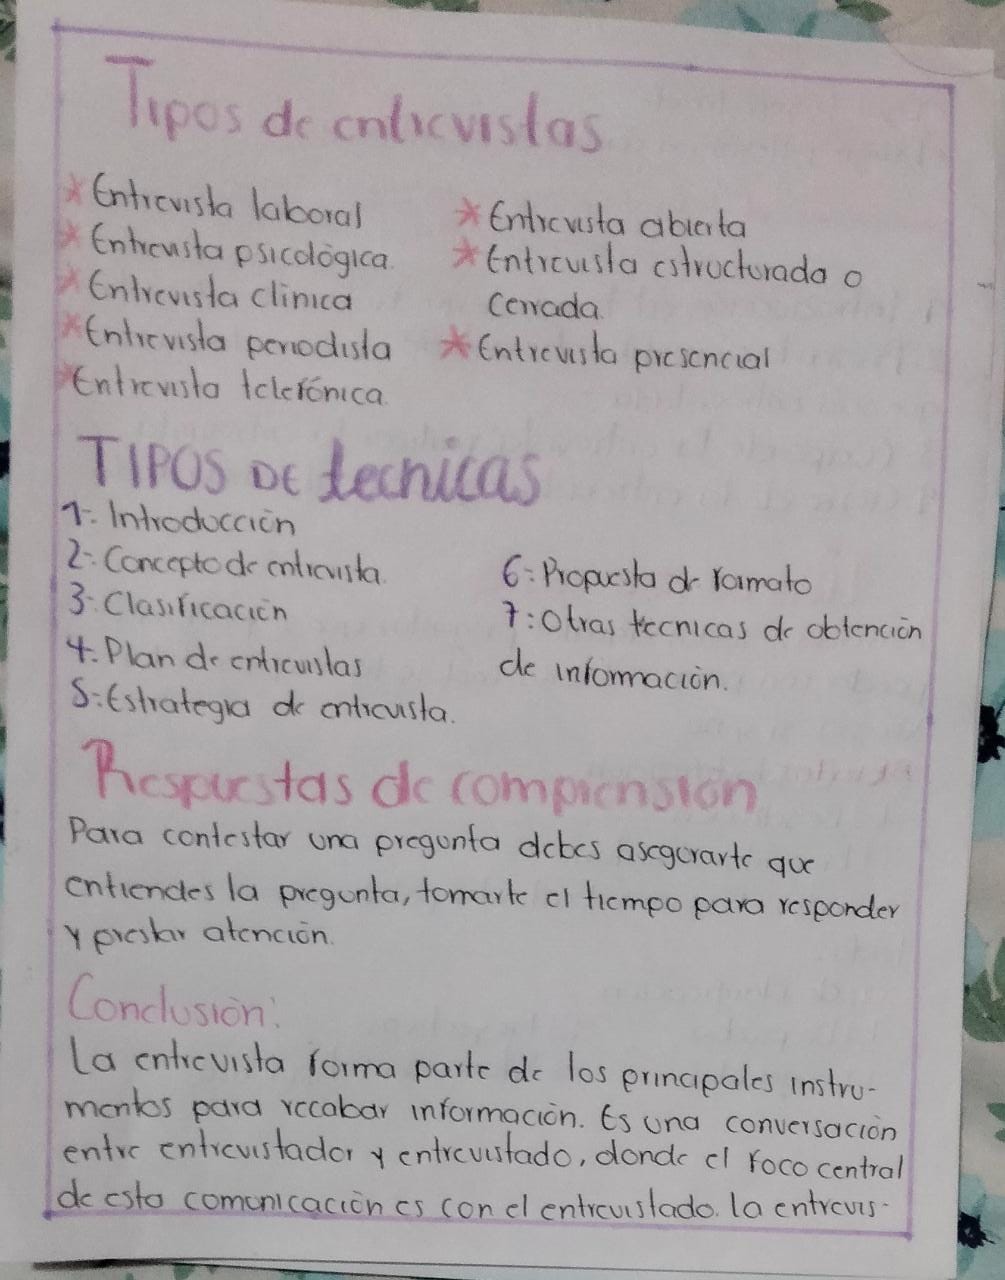 Tipos de entrevistas
* Entrevista laboral
* Entrevista psicológica.
* Entrevista clínica
* Entrevista periodista
* Entrevista telefónica.
* Entrevista abierta
* Entrevista estructurada o
cerrada.
* Entrevista presencial
TIPOS DE tecnicas
1-. Introducción
2-. Concepto de entrevista.
3-. Clasificación
4-. Plan de entrevistas
5-. Estrategia de entrevista.
6-. Propuesta de formato
7-. Otras tecnicas de obtención
de información.
Respuestas de comprensión
Para contestar una pregunta debes asegurarte que
entiendes la pregunta, tomarte el tiempo para responder
y prestar atención.
Conclusión:
La entrevista forma parte de los principales instru-
mentos para recabar información. Es una conversación
entre entrevistador y entrevistado, donde el foco central
de esta comunicación es con el entrevistado. la entrevis-